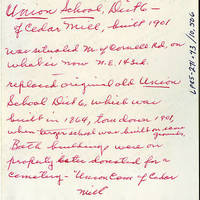 Union School, Dist 6 -
of Cedar Mill, built 1901
was situated N. of Cornell Rd, on
what is now N.E. 143rd.
replaced original old Union
School Dist 6, which was
built in 1869, torn down 1901,
when larger school was built on same
grounds.
Both buildings were on
property later donated for a
cemetery - "Union Cem. of Cedar
Mill